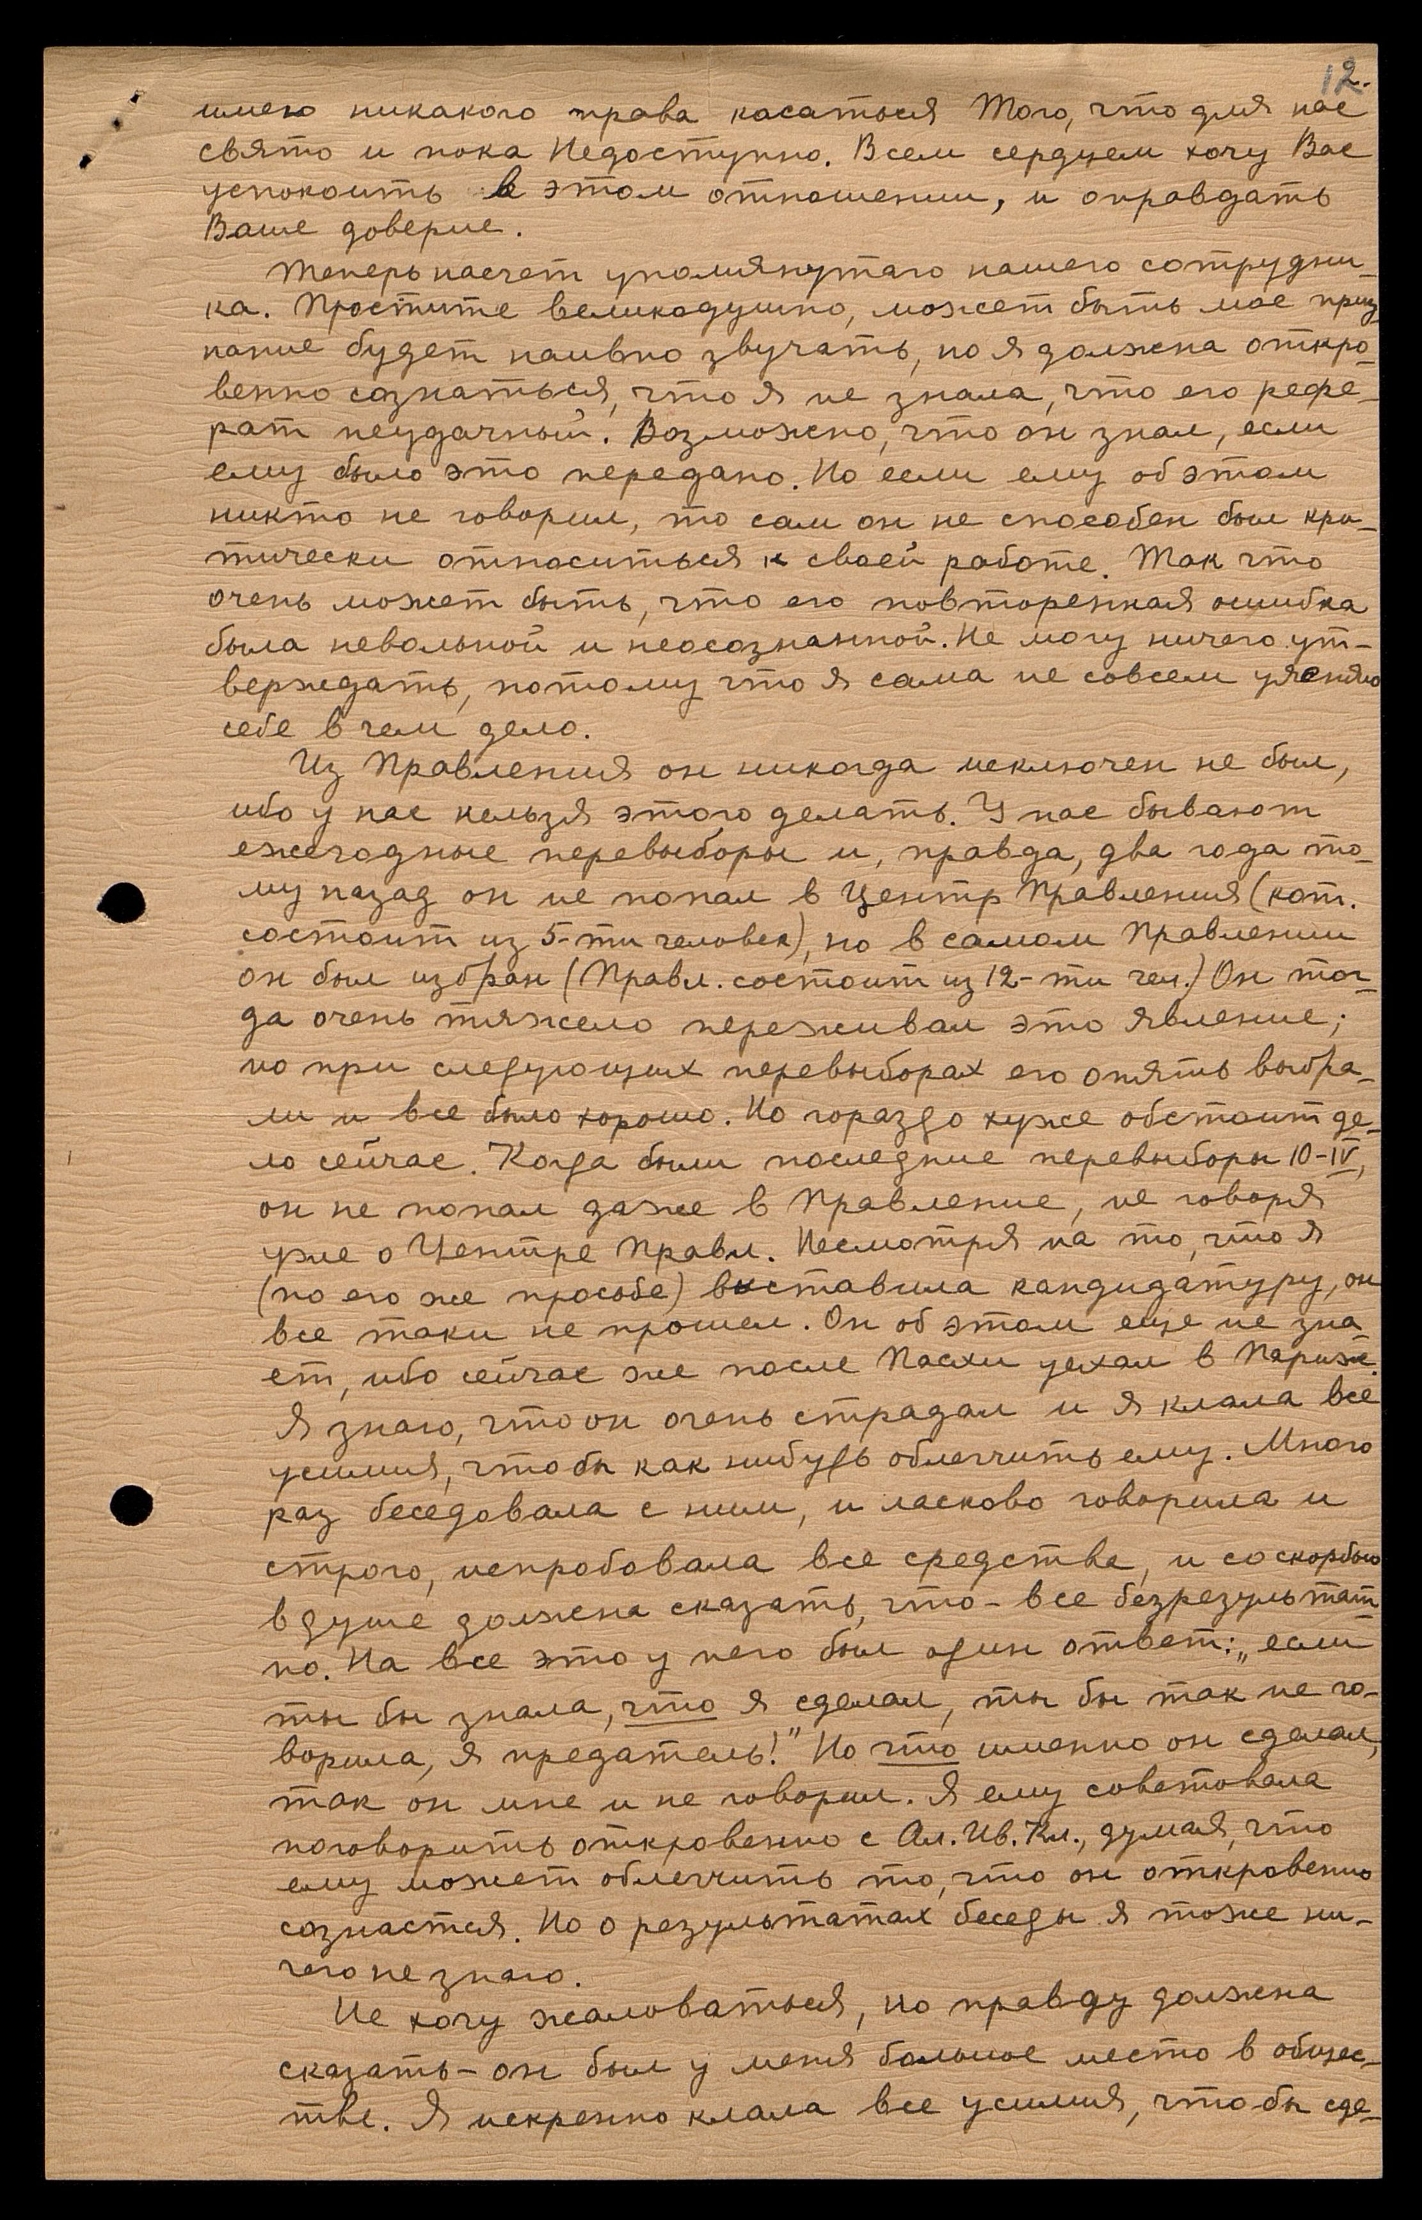 12.
имею никакого права касаться Того, что для нас
свято и пока Недоступно. Всем сердцем хочу Вас
успокоить в этом отношении, и оправдать
Ваше доверие.
Теперь насчет упомянутаго нашего сотрудни-
ка. Простите великодушно, может быть мое приз-
нание будет наивно звучать, но я должна откро-
венно сознаться, что я не знала, что его рефе-
рат неудачный. Возможно, что он знал, если
ему было это передано. Но если ему об этом
никто не говорил, то сам он не способен был кри-
тически относиться к своей работе. Так что
очень может быть, что его повторенная ошибка
была невольной и неосознанной. Не могу ничего ут-
верждать, потому что я сама не совсем уясняю
себе в чем дело.
Из Правления он никогда исключен не был,
ибо у нас нельзя этого делать. У нас бывают
ежегодные перевыборы и, правда, два года то-
му назад он не попал в Центр Правления (кот.
состоит из 5-ти человек), но в самом Правлении
он был избран (Правл. состоит из 12-ти чел.) Он тог-
да очень тяжело переживал это явление;
но при следующих перевыборах его опять выбра-
ли и все было хорошо. Но гораздо хуже обстоит де-
ло сейчас. Когда были последние перевыборы 10-IV,
он не попал даже в Правление, не говоря
уже о Центре Правл. Несмотря на то, что я
(по его же прособе) выставила кандидатуру, он
все таки не прошел. Он об этом еще не зна-
ет, ибо сейчас же после Пасхи уехал в Париж.
Я знаю, что он очень страдал и я клала все
усилия, чтобы как нибудь облегчить ему. Много
раз беседовала с ним, и ласково говорила и
строго, испробовала все средства, и со скорбью
в душе должна сказать, что - все безрезультат-
но. На все это у него был один ответ: „если
ты бы знала, что я сделал, ты бы так не го-
ворила, я предатель!" Но что именно он сделал,
так он мне и не говорил. Я ему советовала
поговорить откровенно с Ал. Ив. Кл., думая, что
ему может облегчить то, что он откровенно
сознастся. Но о результатах беседы я тоже ни-
чего не знаю.
Не хочу жаловаться, но правду должна
сказать - он был у меня больное место в общес-
тве. Я искренно клала все усилия, чтобы сде-